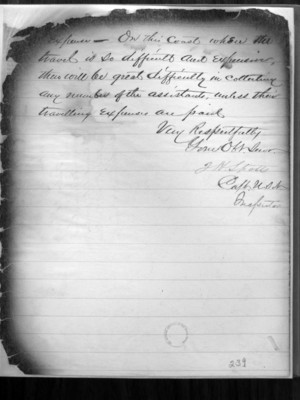 Expenses — On this Coast where the
travel is so difficult and expensive,
there will be great difficulty in collecting
any number of the assistants, unless their
travelling expenses are paid.
Very Respectfully
Your Obt Servt
Capt. U.S.A.
Inspector
239